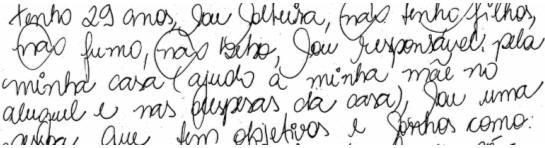 tenho 29 anos, sou solteira, não tenho filhos,
não fumo, não bebo, sou responsável pela
minha casa (ajudo à minha mãe no
aluguel e nas despesas da casa), sou uma
pessoa que tem objetivos e sonhos como: